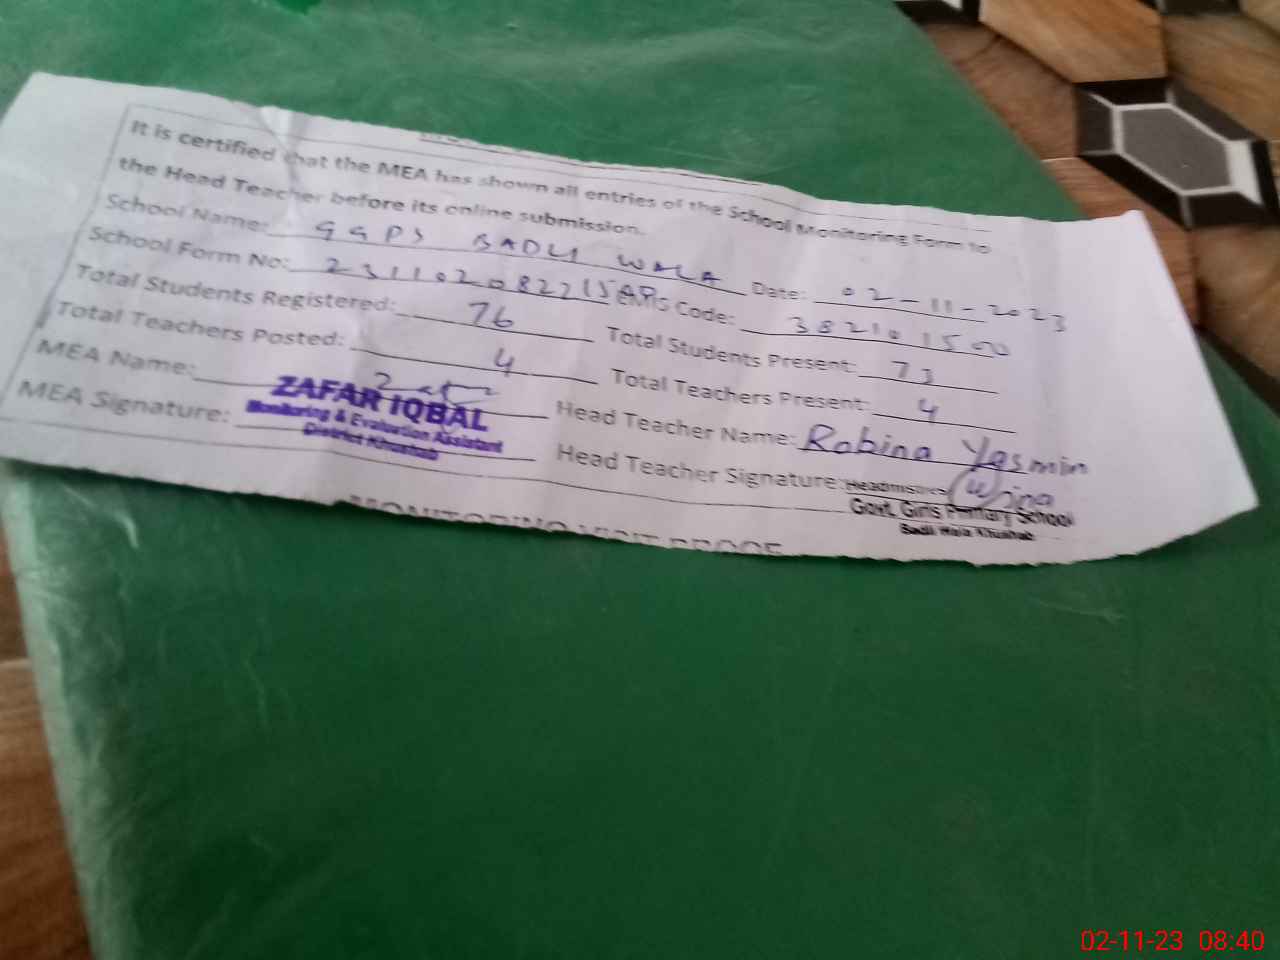 It is certified that the MEA has shown all entries of the School Monitoring Form to
the Head Teacher before its online submission.
School Name: GGPS BADLI WALA Date: 02-11-2023
School Form No: EMIS Code: 382101500
Total Students Registered: 76 Total Students Present: 73
Total Teachers Posted: 4 Total Teachers Present: 4
MEA Name: Head Teacher Name: Robina Yasmin
MEA Signature: Head Teacher Signature:
ZAFAR IQBAL
Monitoring & Evaluation Assistant
District Khushab
Headmistress
Govt. Girls Primary School
Badli Wala Khushab
MONITORING VISIT PROOF
02-11-23 08:40